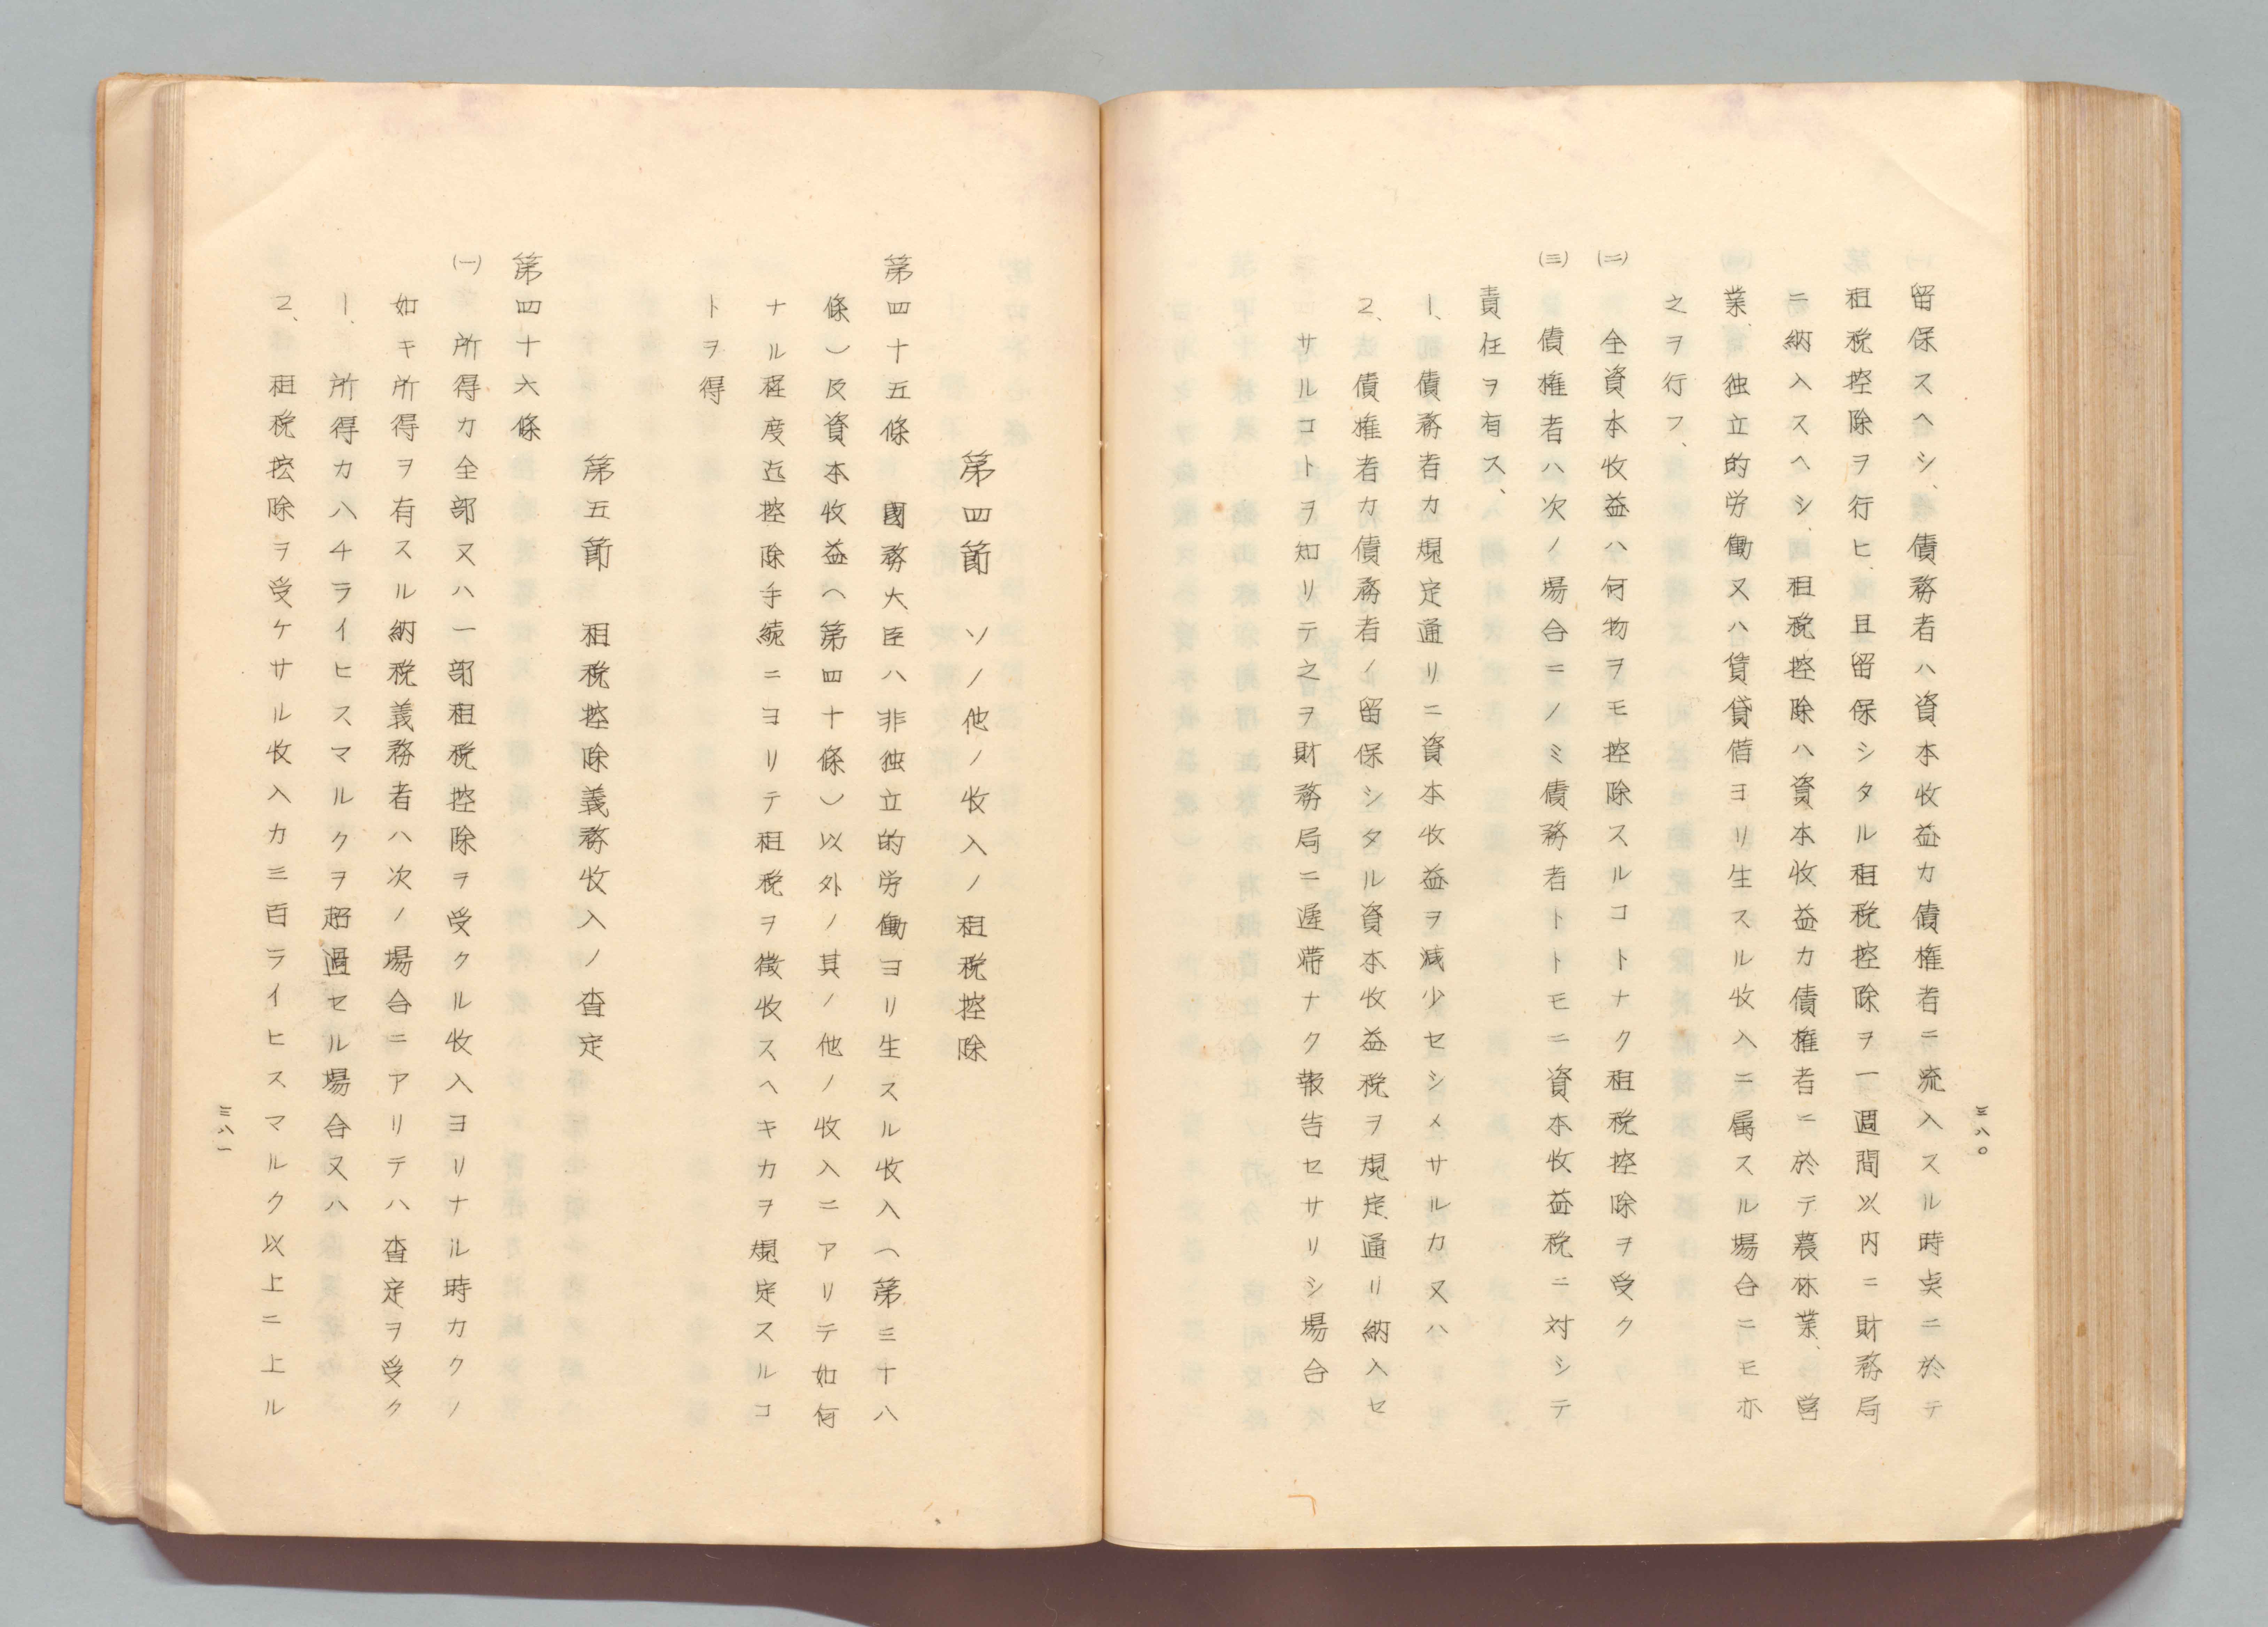 留保スヘシ、債務者ハ資本收益カ債権者ニ流入スル時点ニ於テ
租税控除ヲ行ヒ、且留保シタル租税控除ヲ一週間以内ニ財務局
ニ納入スヘシ、租税控除ハ資本收益カ債権者ニ於テ農林業、営
業、独立的労働又ハ賃貸借ヨリ生スル收入ニ属スル場合ニモ亦
之ヲ行フ、
㈡　全資本收益ハ何物ヲモ控除スルコトナク租税控除ヲ受ク
㈢　債権者ハ次ノ場合ニノミ債務者トトモニ資本收益税ニ対シテ
責任ヲ有ス、
1、債務者カ規定通リニ資本收益ヲ減少セシメサルカ又ハ
2、債権者カ債務者ノ留保シタル資本收益税ヲ規定通リ納入セ
サルコトヲ知リテ之ヲ財務局ニ遅滞ナク報告セサリシ場合
三八〇
第四節　ソノ他ノ收入ノ租税控除
第四十五條　國務大臣ハ非独立的労働ヨリ生スル收入（第三十八
條）及資本收益（第四十條）以外ノ其ノ他ノ收入ニアリテ如何
ナル程度迄控除手続ニヨリテ租税ヲ徴收スヘキカヲ規定スルコ
トヲ得
第五節　租税控除義務收入ノ査定
第四十六條
㈠　所得カ全部又ハ一部租税控除ヲ受クル收入ヨリナル時カクノ
如キ所得ヲ有スル納税義務者ハ次ノ場合ニアリテハ査定ヲ受ク
1、所得カ八千ライヒスマルクヲ超過セル場合又ハ
2、租税控除ヲ受ケサル收入カ三百ライヒスマルク以上ニ上ル
三八一